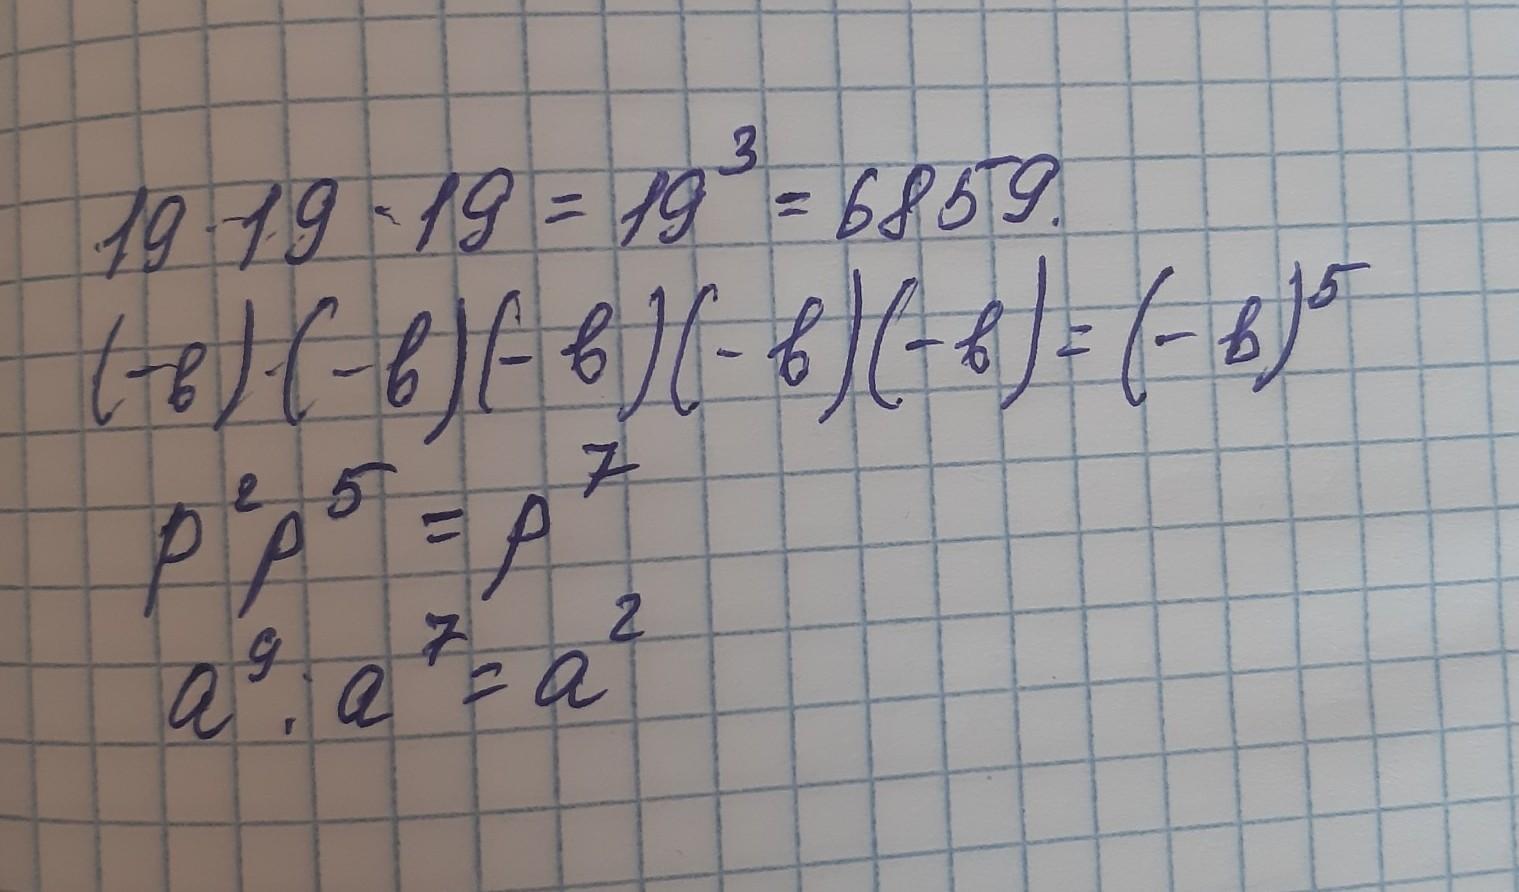 19 · 19 · 19 = 19³ = 6859.
(-в)·(-в)(-в)(-в)(-в) = (-в)⁵
p²p⁵ = p⁷
a⁹ : a⁷ = a²